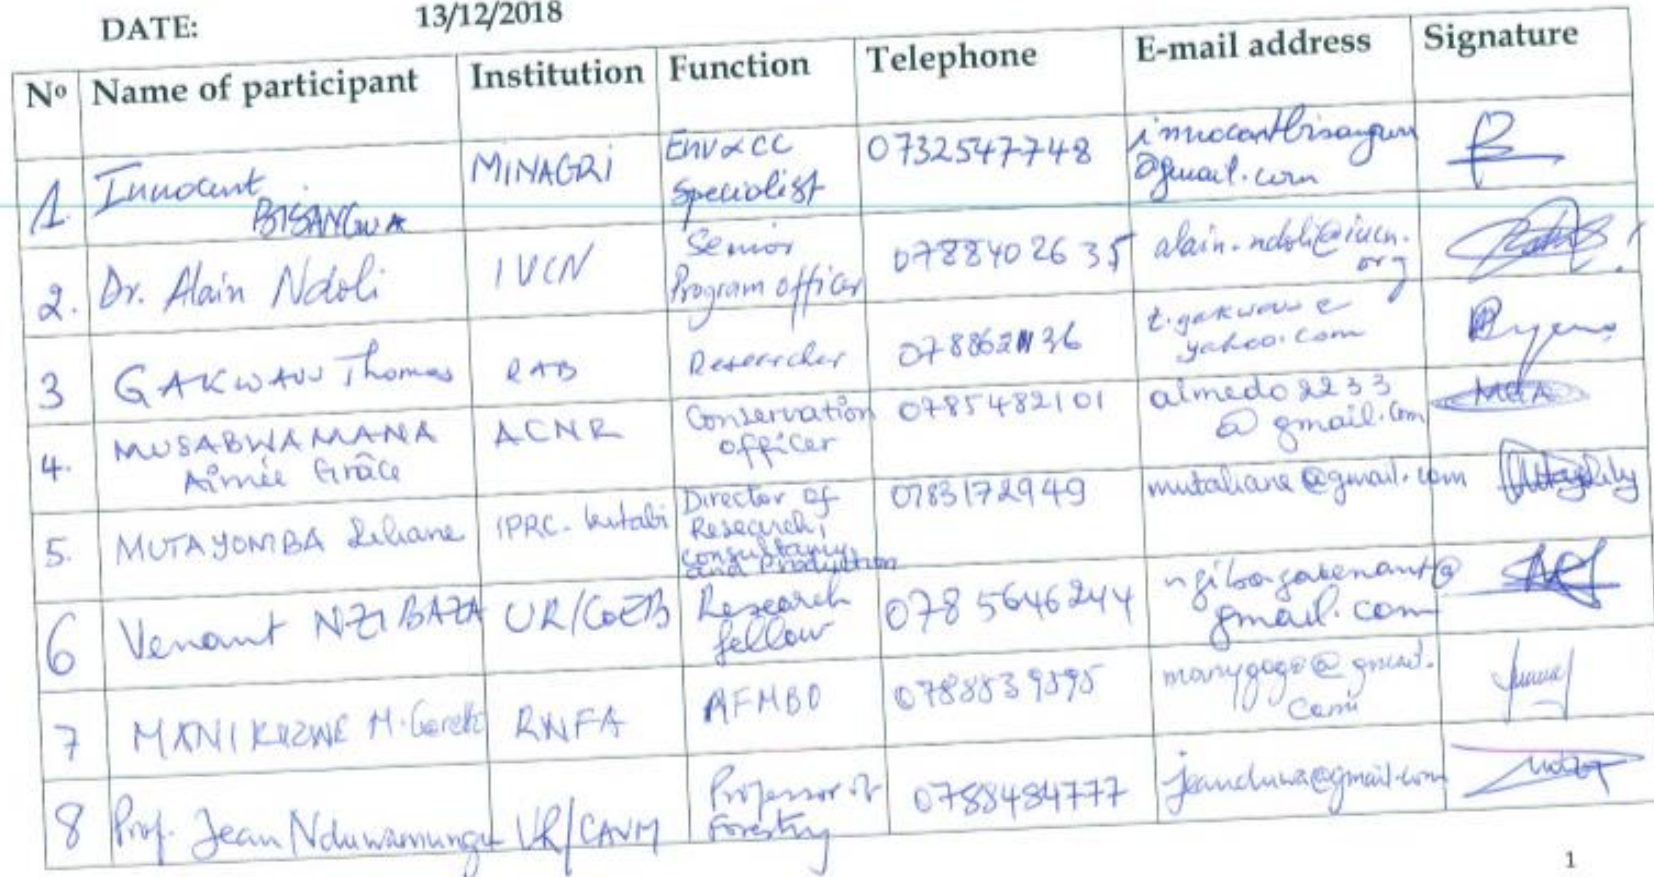 DATE: 13/12/2018
Nº Name of participant Institution Function Telephone E-mail address Signature
1. Innocent BISANGWA MINAGRI Env & CC Specialist 0732547748 @gmail.com
2. Dr. Alain Ndoli IUCN Senior Program officer 0788402635 alain.ndoli@iucn.org
3 GAKWAVU Thomas RAB Researcher yahoo.com
4. MUSABWAMANA Aimée Grâce ACNR Conservation officer 0785482101 almedo2233@gmail.com
5. MUTAYOMBA Liliane IPRC-Kitabi Director of Research, consultancy and Production 0783172949 mutaliane@gmail.com
6 Venant NZIBAZA UR/CoEB Research fellow 0785646244 gmail.com
7 M.Goreth RWFA AFMBO
8 Prof. Jean Nduwamungu UR/CAVM Professor of Forestry 0788484777 jeanduwa@gmail.com
1